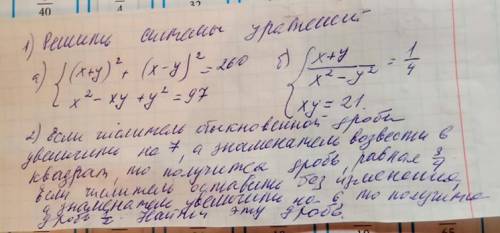 40
4
32
1) Решить системы уравнений
а) { (x+y)² + (x-y)² = 260
x² - xy + y² = 97
б) { (x+y)/(x² - y²) = 1/4
xy = 21.
2) Если числитель обыкновенной дроби
увеличить на 7, а знаменатель возвести в
квадрат, то получится дробь, равная 3/4
если числитель оставить без изменения,
а знаменатель увеличить на 6, то получится
дробь 1/2. Найти эту дробь.
65